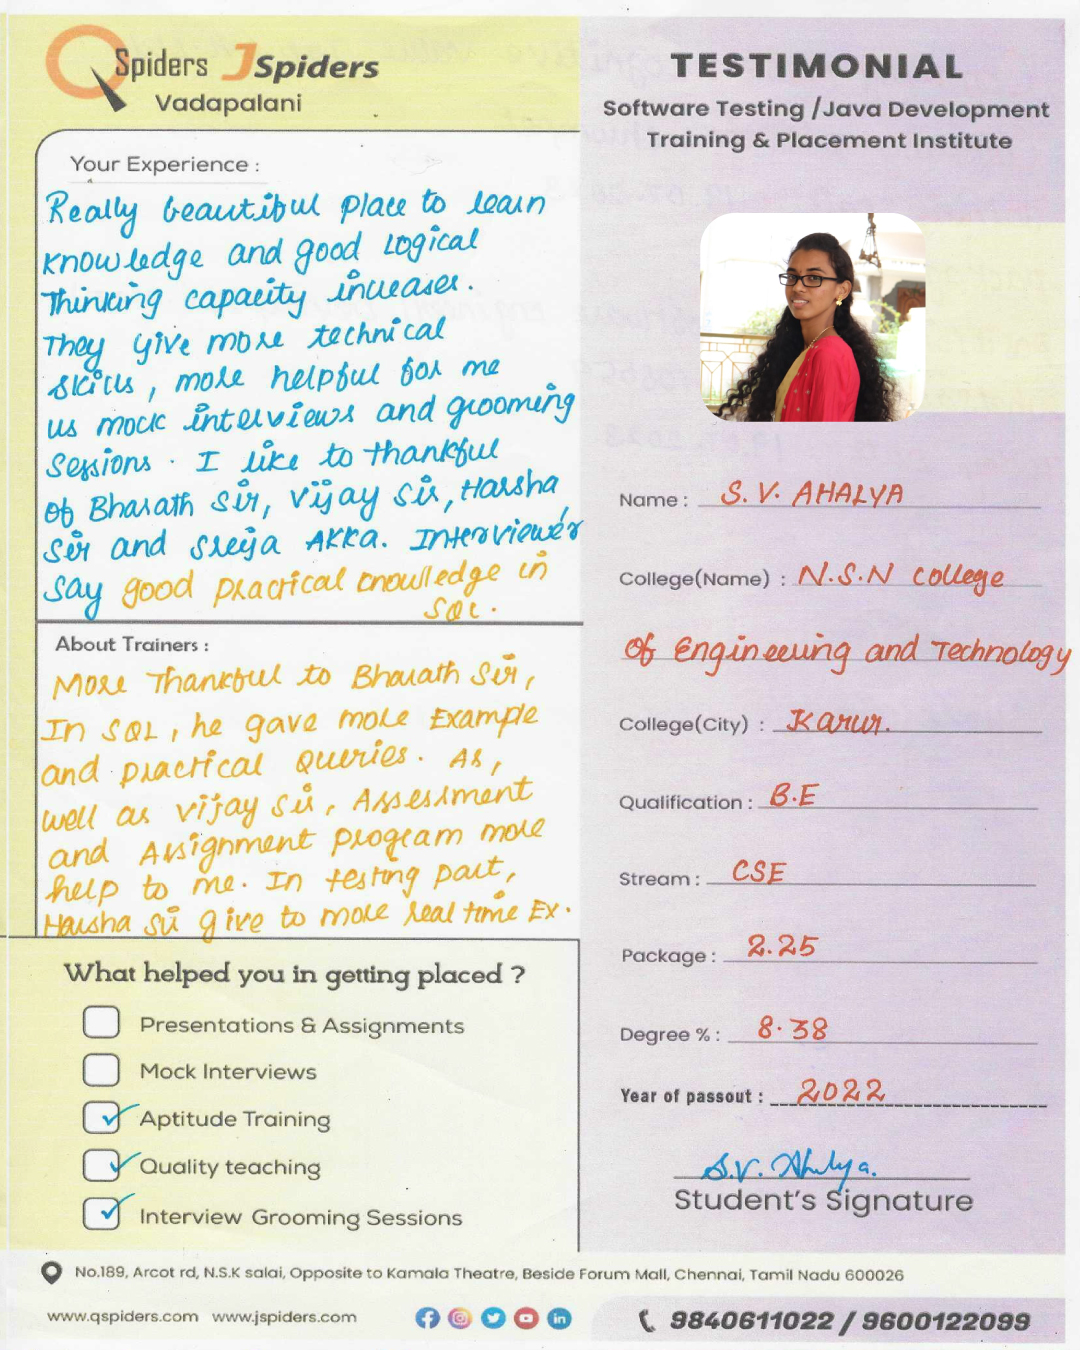 QSpiders JSpiders
Vadapalani
TESTIMONIAL
Software Testing /Java Development
Training & Placement Institute
Your Experience :
Really beautiful place to learn
knowledge and good Logical
Thinking capacity increases.
They give more technical
skills, more helpful for me
us mock interviews and grooming
Sessions. I like to thankful
of Bharath Sir, Vijay Sir, Harsha
Sir and Sreeja AKKA. Interviewer
say good practical knowledge in
SQL.
About Trainers :
More Thankful to Bharath Sir,
In SQL, he gave more Example
and practical Queries. As,
well as Vijay Sir, Assessment
and Assignment program more
help to me. In testing part,
Harsha Sir give to more real time Ex.
What helped you in getting placed ?
Presentations & Assignments
Mock Interviews
Aptitude Training
Quality teaching
Interview Grooming Sessions
Name : S. V. AHALYA
College(Name) : N.S.N college
of Engineering and Technology
College(City) : Karur.
Qualification : B.E
Stream : CSE
Package : 2.25
Degree % : 8.38
Year of passout : 2022
S.V. Ahalya.
Student's Signature
No.189, Arcot rd, N.S.K salai, Opposite to Kamala Theatre, Beside Forum Mall, Chennai, Tamil Nadu 600026
www.qspiders.com www.jspiders.com
9840611022 / 9600122099